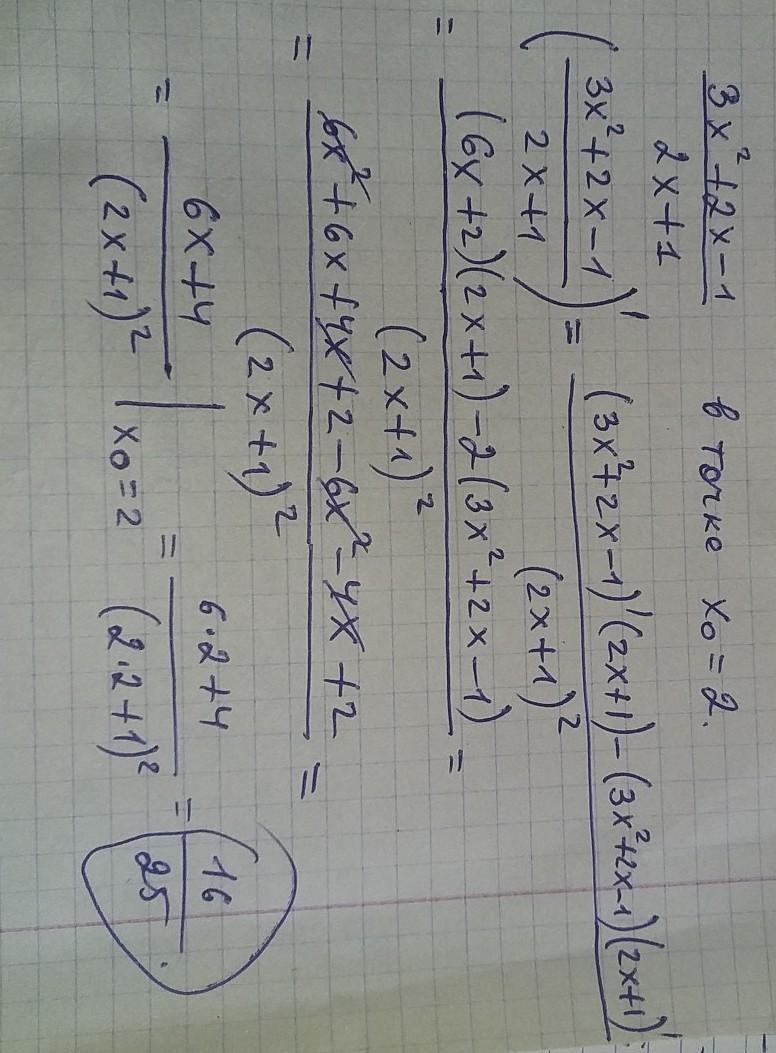 3x²+2x-1 / 2x+1 в точке x₀=2.
(3x²+2x-1 / 2x+1)' = (3x²+2x-1)'(2x+1)-(3x²+2x-1)(2x+1)' / (2x+1)² =
= (6x+2)(2x+1)-2(3x²+2x-1) / (2x+1)² =
= 6x²+6x+4x+2-6x²-4x+2 / (2x+1)² =
= 6x+4 / (2x+1)² | x₀=2 = 6·2+4 / (2·2+1)² = 16 / 25.